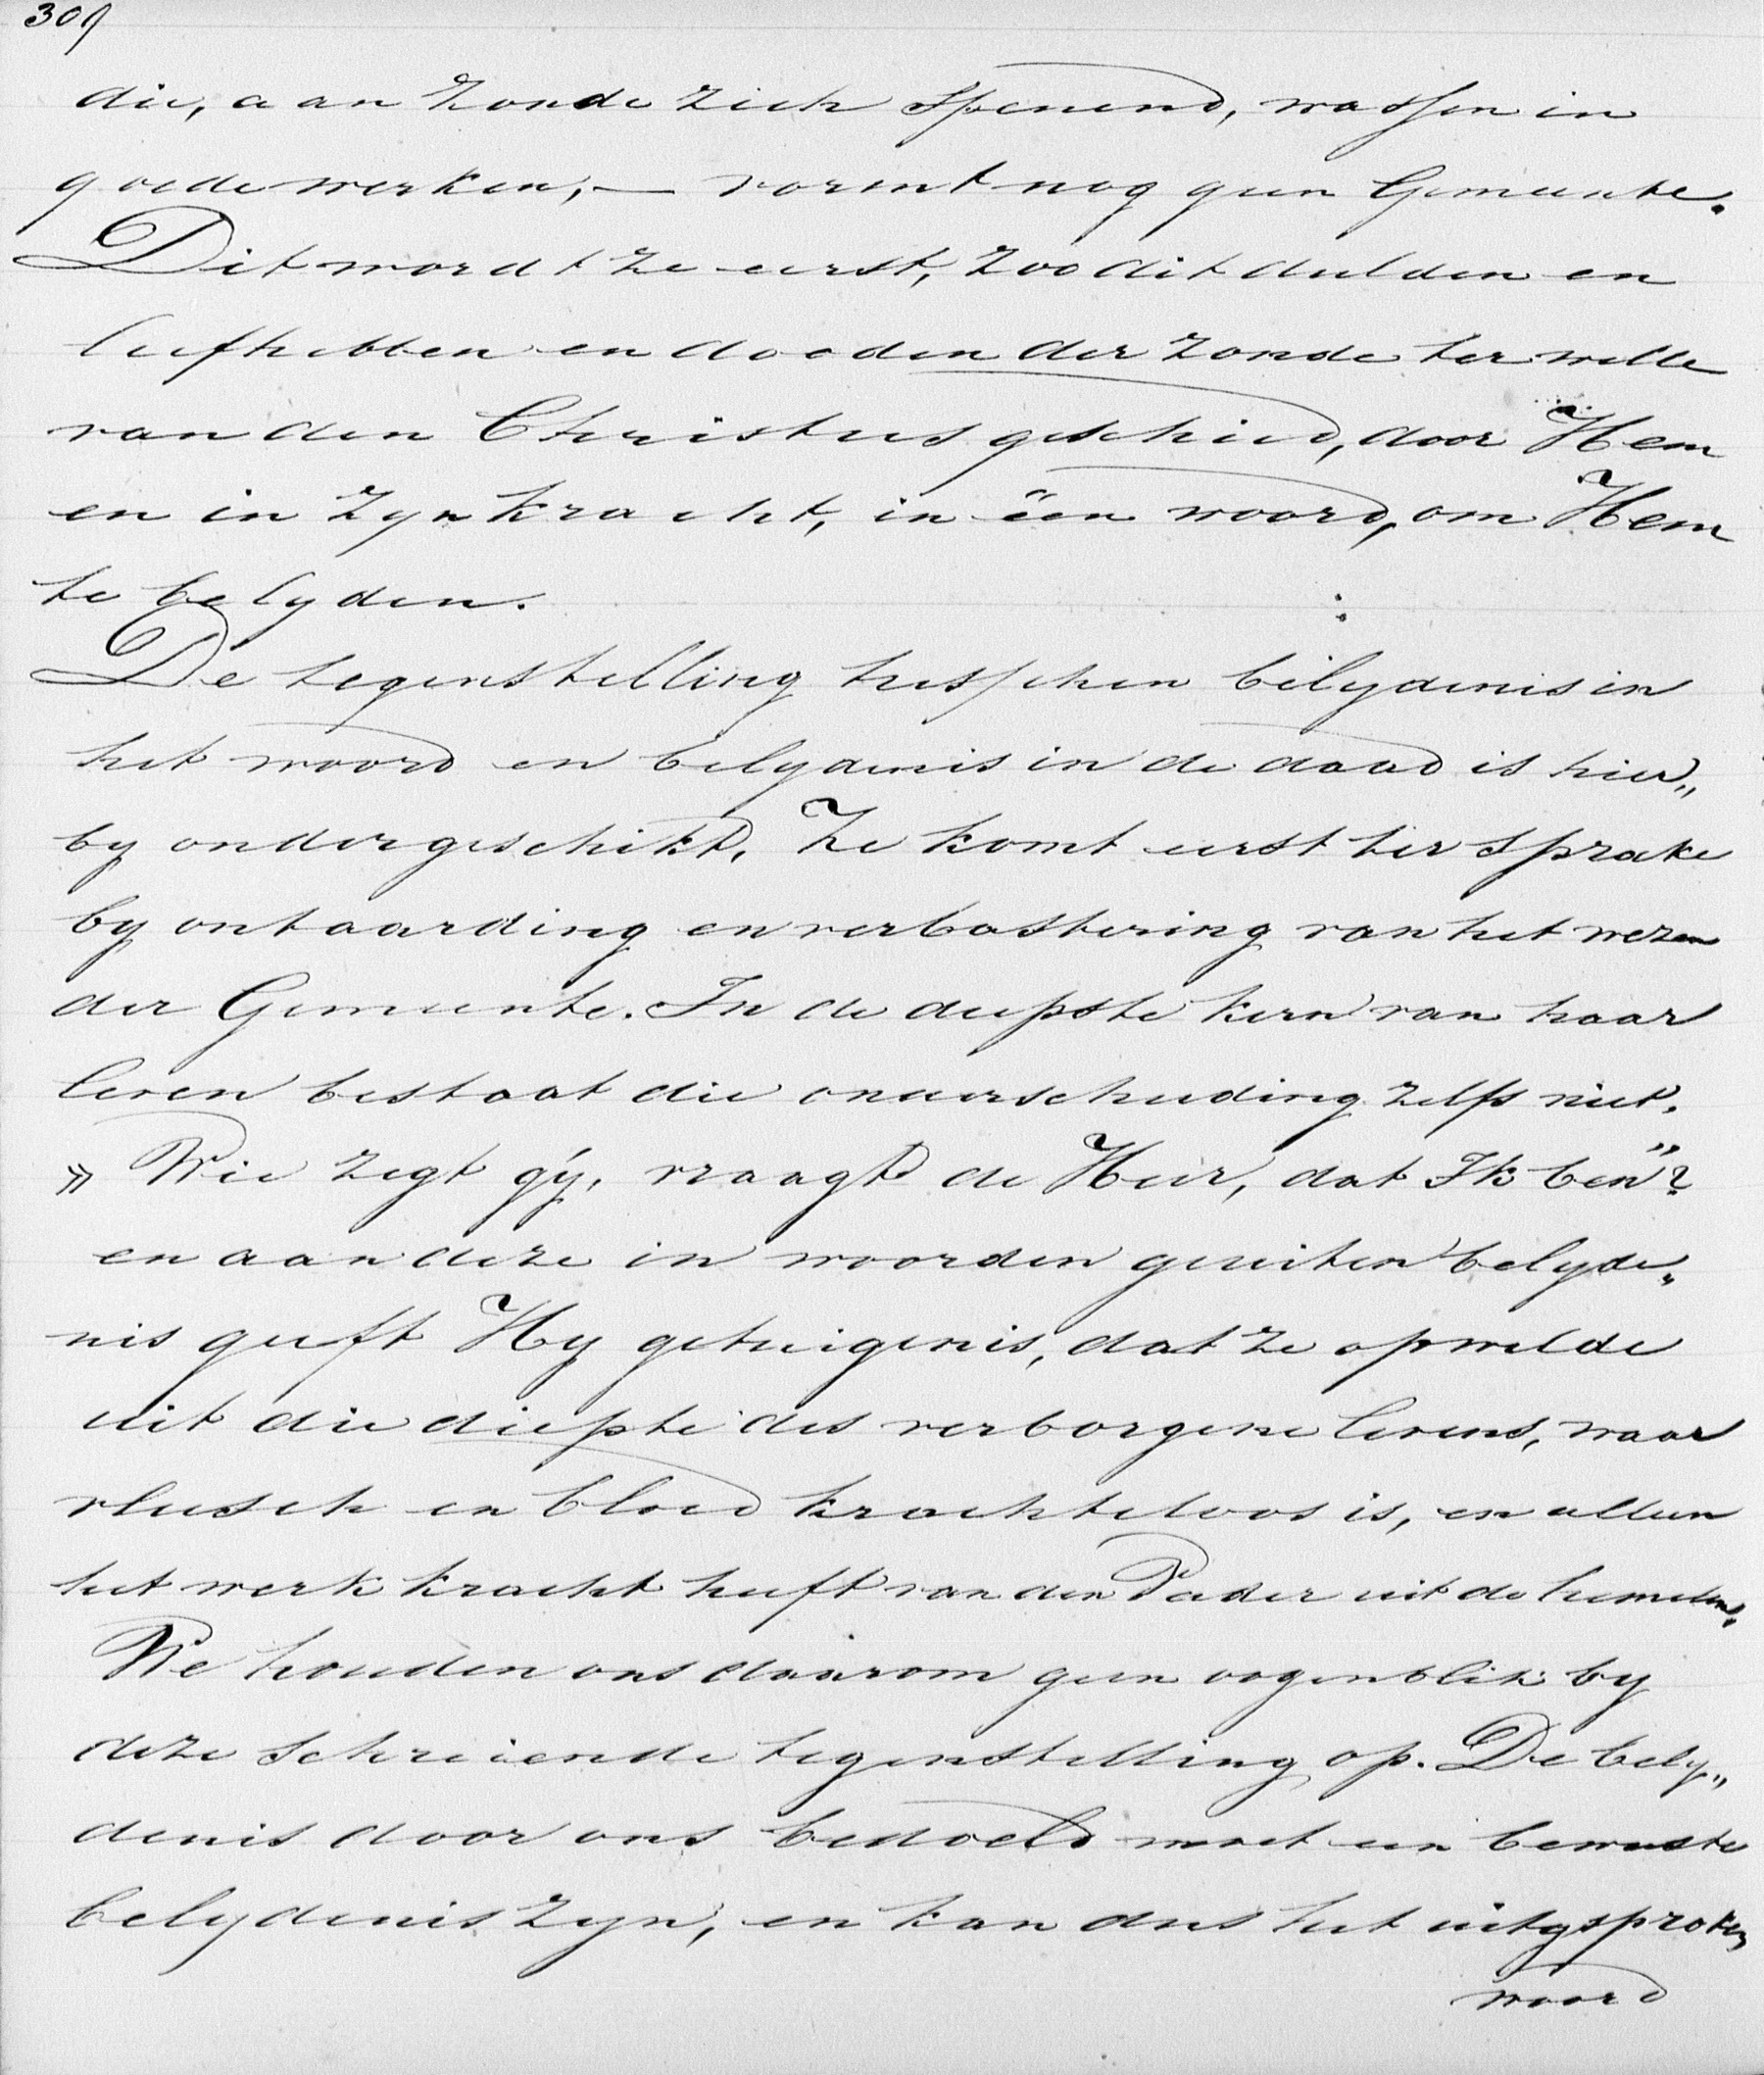 309
die, aan zonde zich spenend, wassen in
goede werken, — vormt nog geen Gemeente.
Dit wordt ze eerst, zoo dit dulden en
liefhebben en dooden der zonde ter wille
van den Christus geschied, door Hem
en in Zyn kracht, in één woord, om Hem
te belyden.
De tegenstelling tusschen belydenis in
het woord en belydenis in de daad is hier„
by ondergeschikt. Ze komt eerst ter sprake
by ontaarding en verbastering van het wezen
der Gemeente. In de diepste kern van haar
leven bestaat die onderscheiding zelfs niet.
» Wie zegt gÿ, vraagt de Heer, dat Ik ben”?
en aan deze in woorden geuiten belyde„
nis geeft Hy getuigenis, dat ze opwelde
uit die diepte des verborgene levens, waar
vleesch en bloed krachteloos is, en alleen
het werk kracht heeft van den Vader uit de hemelen.
We houden ons daarom geen oogenblik by
deze schreiende tegenstelling op. De bely„
denis door ons bedoeld moet een bewuste
belydenis zyn, en kan dus het uitgsproken
woord